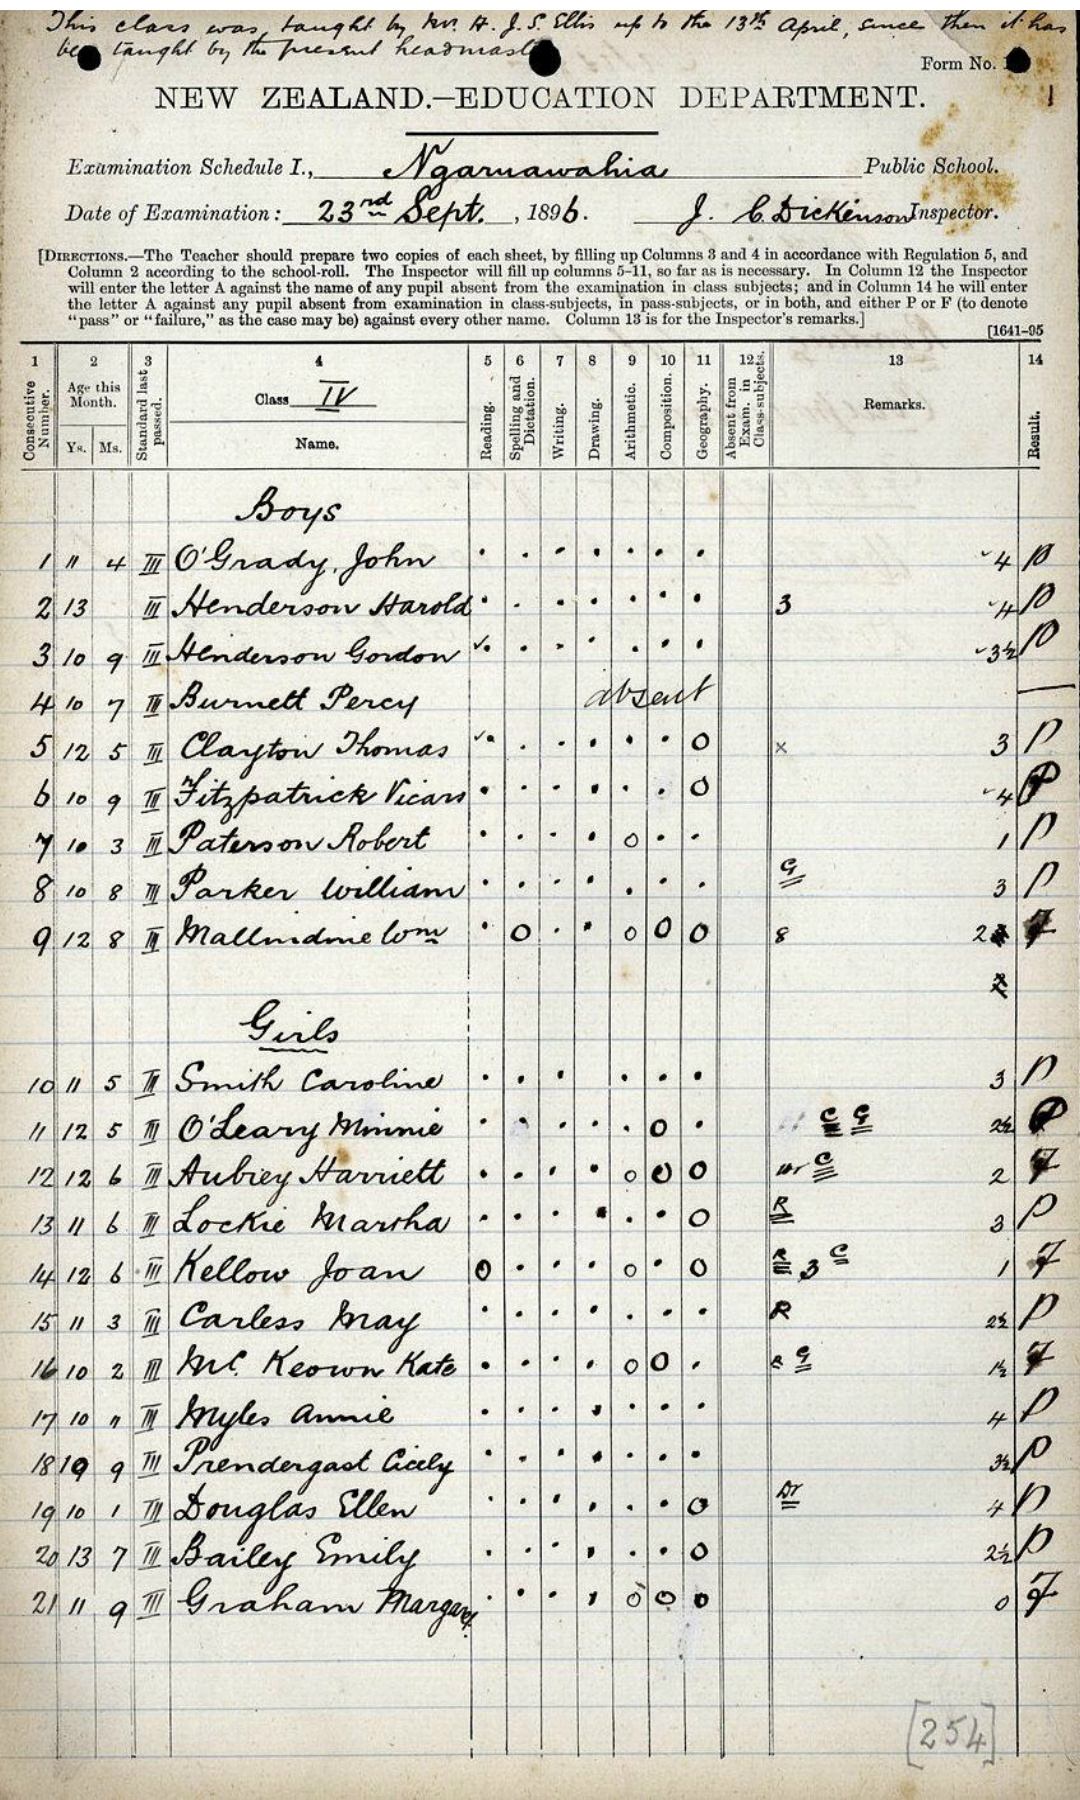 This class was taught by Mr. H. J. S. Ellis up to the 13th April, since then it has
been taught by the present headmaster
Form No. 1
NEW ZEALAND.—EDUCATION DEPARTMENT.
Examination Schedule I., Ngaruawahia Public School.
Date of Examination: 23rd Sept., 1896. J. C. Dickinson Inspector.
[DIRECTIONS.—The Teacher should prepare two copies of each sheet, by filling up Columns 3 and 4 in accordance with Regulation 5, and
Column 2 according to the school-roll. The Inspector will fill up columns 5-11, so far as is necessary. In Column 12 the Inspector
will enter the letter A against the name of any pupil absent from the examination in class subjects; and in Column 14 he will enter
the letter A against any pupil absent from examination in class-subjects, in pass-subjects, or in both, and either P or F (to denote
"pass" or "failure," as the case may be) against every other name. Column 13 is for the Inspector's remarks.]
[1641-95
1 2 3 4 5 6 7 8 9 10 11 12 13 14
Consecutive Number. Age this Month. Ys. Ms. Standard last passed. Class IV Name. Reading. Spelling and Dictation. Writing. Drawing. Arithmetic. Composition. Geography. Absent from Exam. in Class-subjects. Remarks. Result.
Boys
1 11 4 III O'Grady, John 4 P
2 13 III Henderson Harold 3 4 P
3 10 9 III Henderson Gordon 3½ P
4 10 7 III Burnett Percy absent —
5 12 5 III Clayton Thomas O x 3 P
6 10 9 III Fitzpatrick Vicars O 4 P
7 10 3 III Paterson Robert O 1 P
8 10 8 III Parker William G 3 P
9 12 8 III Wm O O O O 8 2 F
Girls
10 11 5 III Smith Caroline 3 P
11 12 5 III O'Leary Minnie O C G 2½ P
12 12 6 III Aubrey Harriett O O O Wr C 2 F
13 11 6 III Lockie Martha O R 3 P
14 12 6 III Kellow Joan O O O R 3 C 1 F
15 11 3 III Carless May R 2½ P
16 10 2 III McKeown Kate O O R G 1½ F
17 10 11 III Myles Annie 4 P
18 10 9 III Prendergast Cicely 3½ P
19 10 1 III Douglas Ellen O Dr 4 P
20 13 7 III Bailey Emily O 2½ P
21 11 9 III Graham Margaret O O O 0 F
[254]